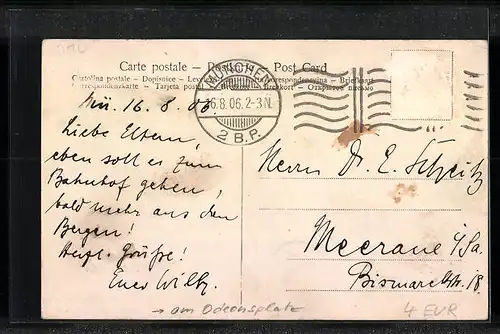 Carte postale – Postkarte – Post Card
Cartolina postale – Dopisnice – Levelező
Korrespondenzkarte – Tarjeta postal – Brefkort – Открытое письмо
MÜNCHEN
16.8.06. 2-3 N.
2 B.P.
Mü. 16.8.06
Liebe Eltern,
eben soll es zum
Bahnhof gehen,
bald mehr aus den
Bergen!
Herzl. Grüße!
Euer Willy.
Herrn Dr. E.
Meerane i/Sa.
Bismarckstr. 18.
→ am Odeonsplatz
4 EUR